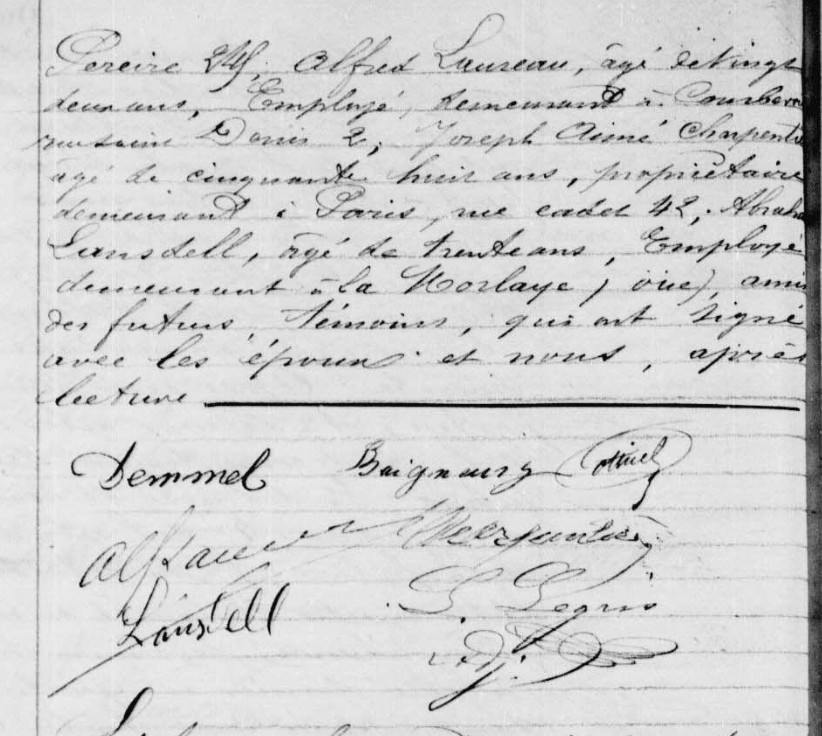 Pereire 24, Alfred Laureau, âgé de vingt
deux ans, Employé, demeurant à Courbev
rue saint Denis 2, Joseph Aimé Charpentie
âgé de cinquante huit ans, propriétaire
demeurant à Paris, rue cadet 42, Abraha
Lansdell, âgé de trente ans, Employé
demeurant à la Morlaye, (oise), amis
des futurs, témoins, qui ont signé
avec les époux et nous, après
lecture
Demmel
ALaureau Charpentier
Lansdell L. Legris